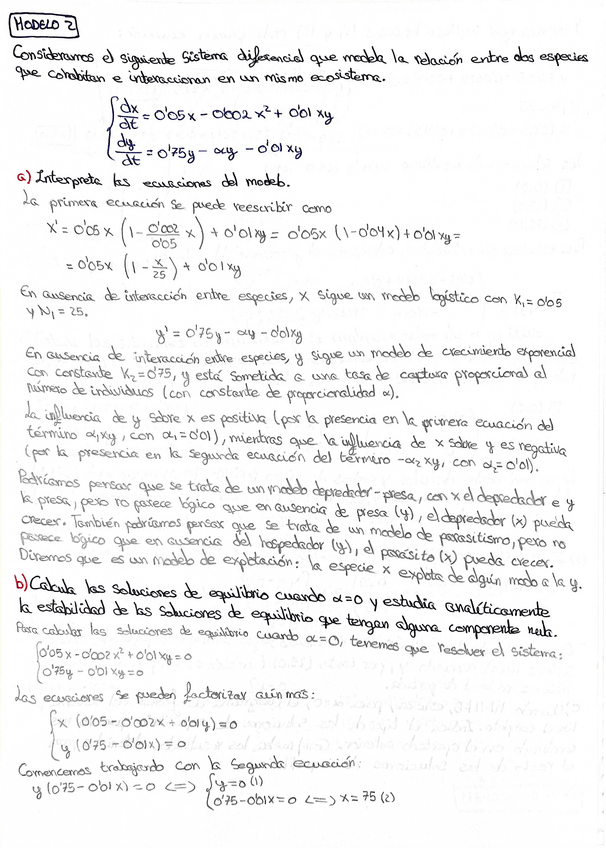 MODELO 2
Consideramos el siguiente sistema diferencial que modela la relación entre dos especies
que cohabitan e interaccionan en un mismo ecosistema.
{ dx/dt = 0'05x - 0'002x² + 0'01xy
dy/dt = 0'75y - αy - 0'01xy
a) Interpreta las ecuaciones del modelo.
La primera ecuación se puede reescribir como
x' = 0'05x (1 - 0'002/0'05 x) + 0'01xy = 0'05x (1 - 0'04x) + 0'01xy =
= 0'05x (1 - x/25) + 0'01xy
En ausencia de interacción entre especies, x sigue un modelo logístico con K₁ = 0'05
y N₁ = 25.
y' = 0'75y - αy - 0'01xy
En ausencia de interacción entre especies, y sigue un modelo de crecimiento exponencial
con constante K₂ = 0'75, y está sometida a una tasa de captura proporcional al
número de individuos (con constante de proporcionalidad α).
La influencia de y sobre x es positiva (por la presencia en la primera ecuación del
término α₁xy, con α₁ = 0'01), mientras que la influencia de x sobre y es negativa
(por la presencia en la segunda ecuación del término -α₂xy, con α₂ = 0'01).
Podríamos pensar que se trata de un modelo depredador-presa, con x el depredador e y
la presa, pero no parece lógico que en ausencia de presa (y), el depredador (x) pueda
crecer. También podríamos pensar que se trata de un modelo de parasitismo, pero no
parece lógico que en ausencia del hospedador (y), el parásito (x) pueda crecer.
Diremos que es un modelo de explotación: la especie x explota de algún modo a la y.
b) Calcula las soluciones de equilibrio cuando α=0 y estudia analíticamente
la estabilidad de las soluciones de equilibrio que tengan alguna componente nula.
Para calcular las soluciones de equilibrio cuando α=0, tenemos que resolver el sistema:
{ 0'05x - 0'002x² + 0'01xy = 0
0'75y - 0'01xy = 0
Las ecuaciones se pueden factorizar aún más:
{ x (0'05 - 0'002x + 0'01y) = 0
y (0'75 - 0'01x) = 0
Comencemos trabajando con la segunda ecuación:
y (0'75 - 0'01x) = 0 <=> { y = 0 (1)
0'75 - 0'01x = 0 <=> x = 75 (2)